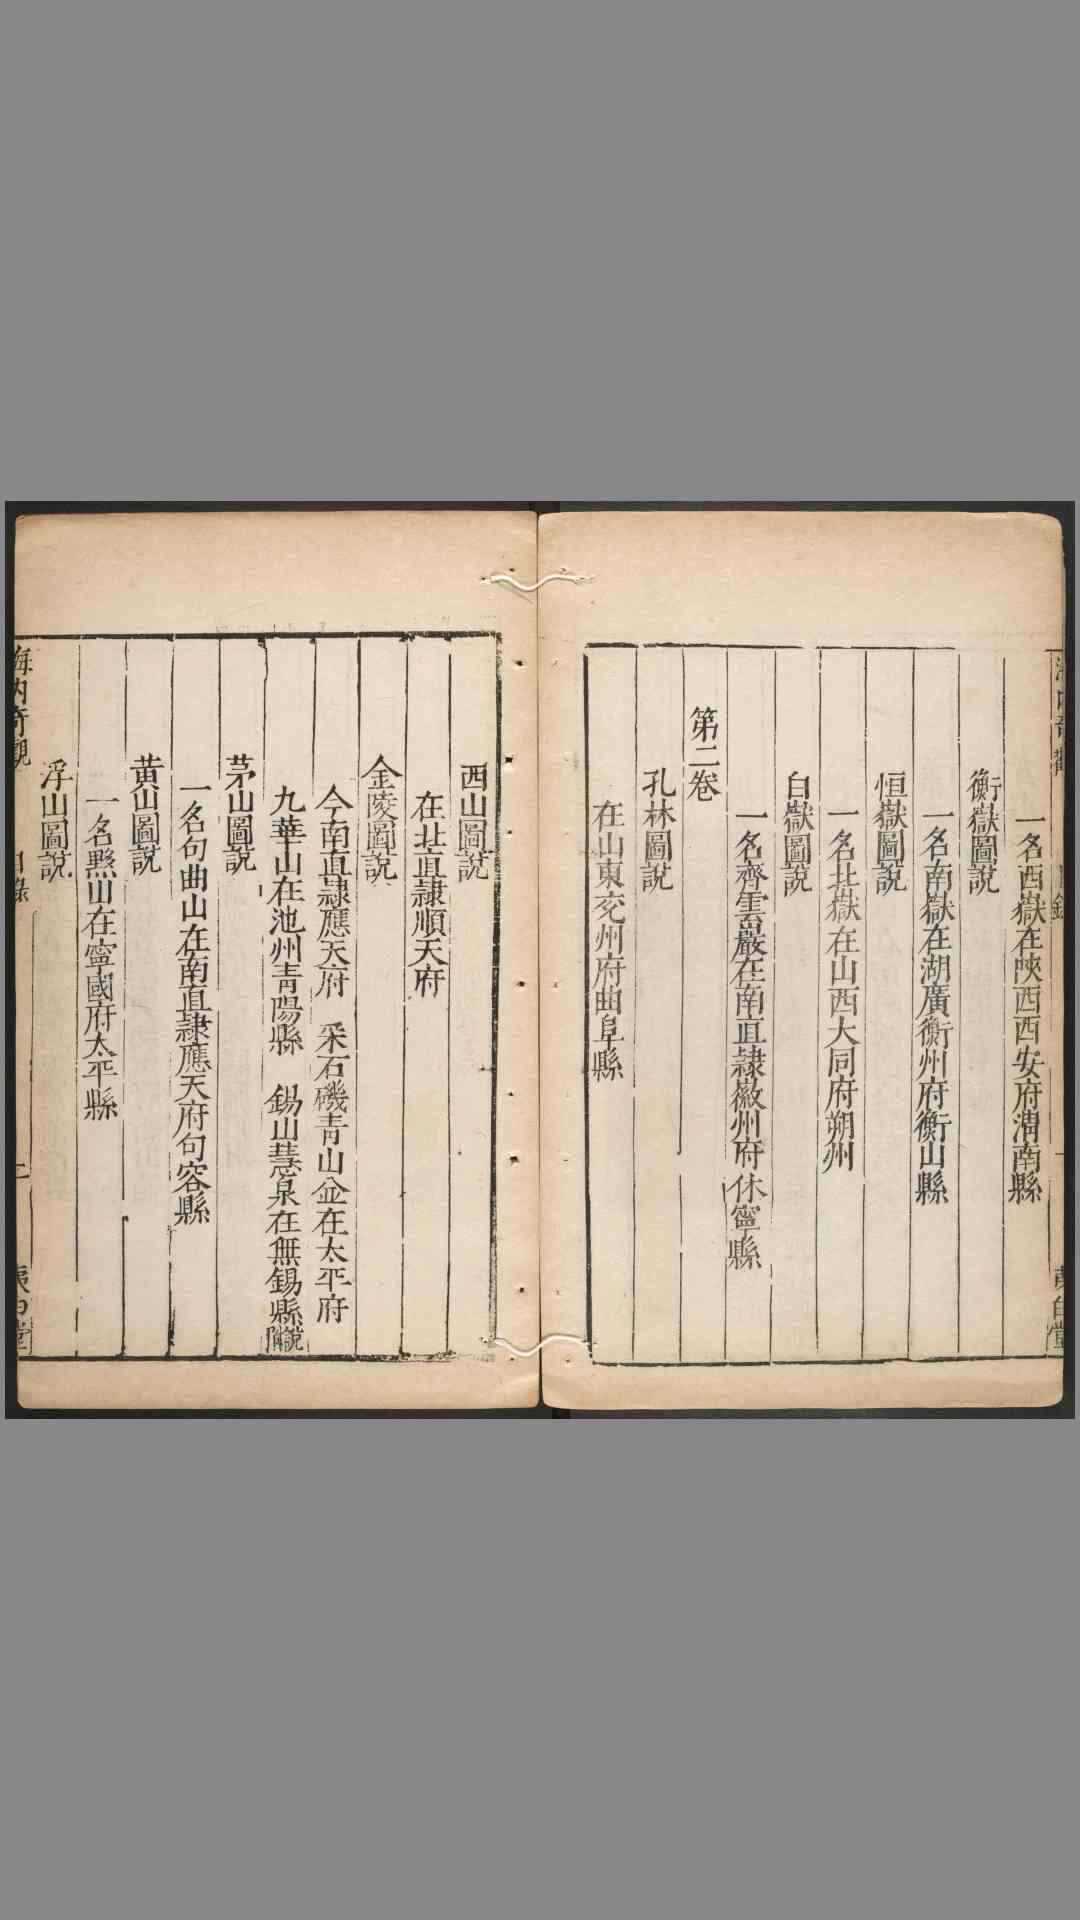 一名西嶽在陝西西安府渭南縣
衡嶽圖說
一名南嶽在湖廣衡州府衡山縣
恒嶽圖說
一名北嶽在山西大同府朔州
白嶽圖說
一名齊雲巖在南直隷徽州府休寧縣
第二卷
孔林圖說
在山東兖州府曲阜縣
西山圖說
在北直隷順天府
金陵圖說
今南直隷應天府 采石磯青山㒰在太平府
九華山在池州青陽縣 錫山慧泉在無錫縣說附
茅山圖說
一名句曲山在南直隷應天府句容縣
黄山圖說
一名黟山在寧國府太平縣
浮山圖說
海内奇觀 目錄 二 夷白堂